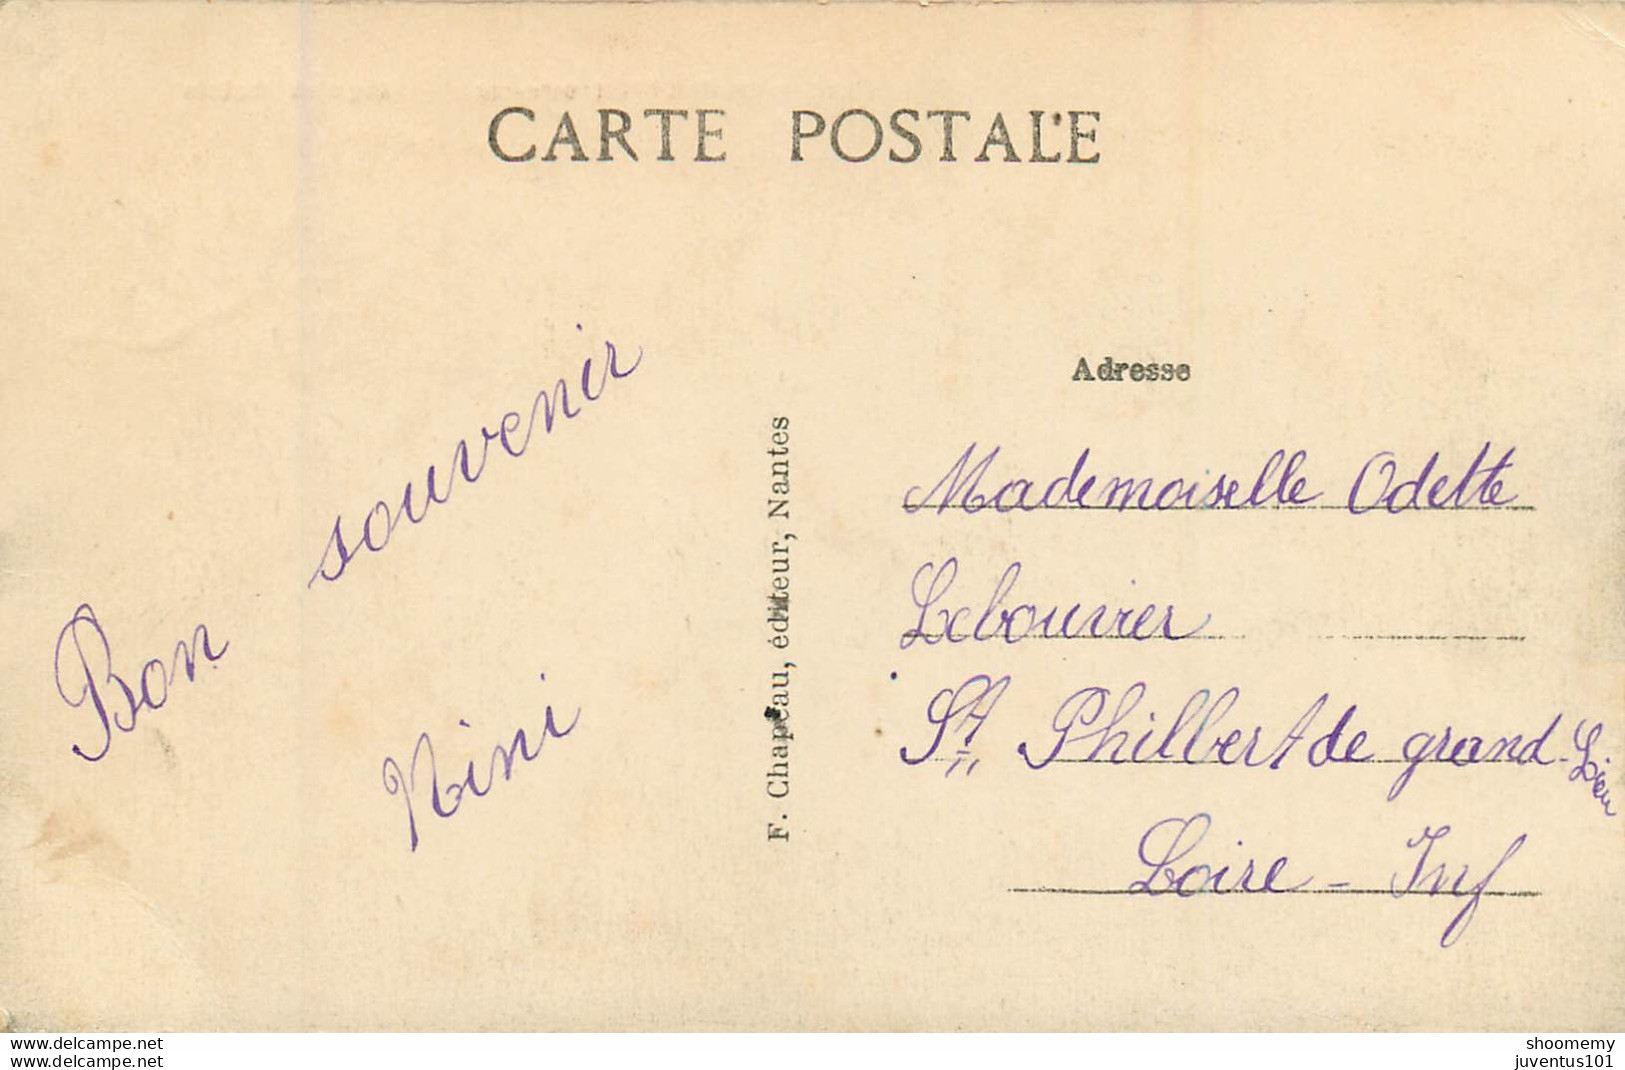 CARTE POSTALE
Bon souvenir
Nini
F. Chapeau, éditeur, Nantes
Adresse
Mademoiselle Odette
Lebouvier
St Philbert de grand-Lieu
Loire - Inf
www.delcampe.net
www.delcampe.net
shoomemy
juventus101